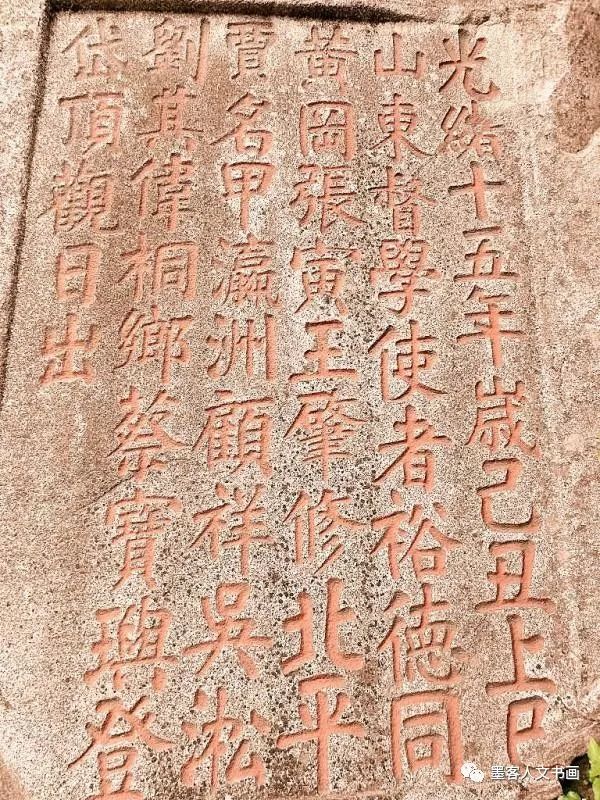 光緒十五年歲己丑上巳
山東督學使者裕德同
黄岡張寅王肇修北平
賈名甲瀛洲顧祥吳淞
劉其偉桐鄉蔡寶璵登
岱頂觀日出
墨客人文书画